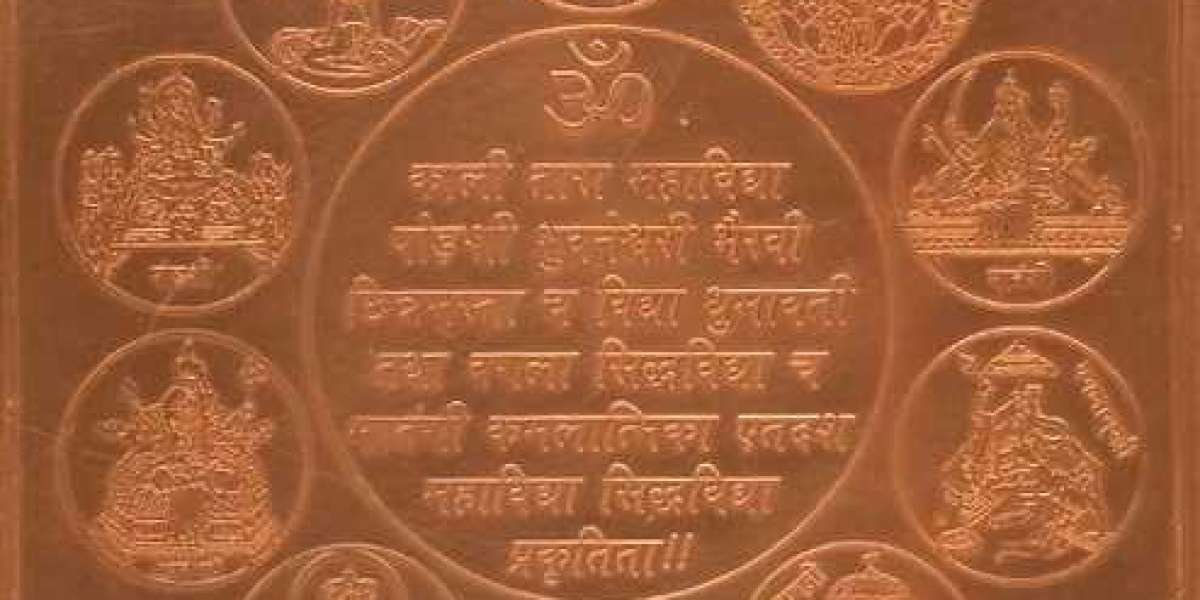 ॐ
काली तारा महाविद्या
षोडशी भुवनेश्वरी भैरवी
छिन्नमस्ता च विद्या धुमावती
तथा बगला सिद्धविद्या च
मातंगी कमलात्मिका एतदश
महाविद्या सिद्धविद्या
प्रकृतिता!!